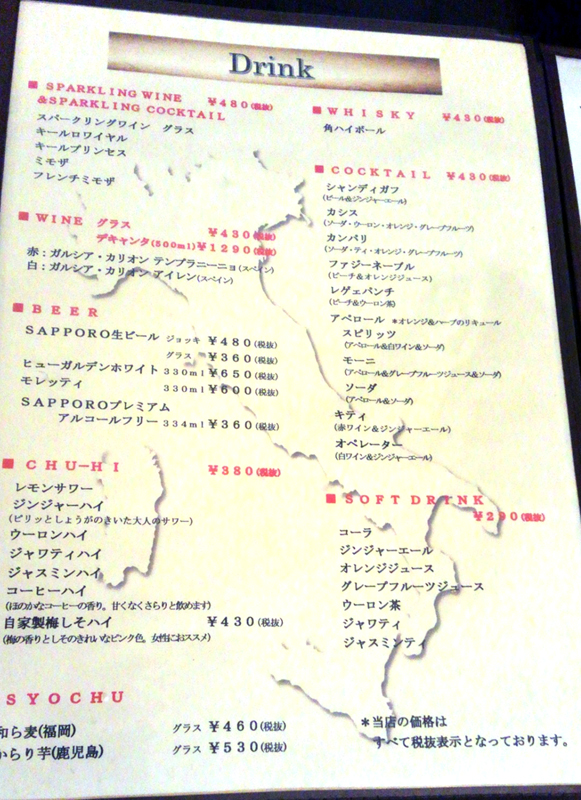 Drink
■ SPARKLING WINE ¥480(税抜)
&SPARKLING COCKTAIL
スパークリングワイン グラス
キールロワイヤル
キールプリンセス
ミモザ
フレンチミモザ
■ WINE グラス ¥430(税抜)
デキャンタ(500ml)¥1290(税抜)
赤：ガルシア・カリオン テンプラニーニョ(スペイン)
白：ガルシア・カリオン アイレン(スペイン)
■ BEER
SAPPORO生ビール ジョッキ ¥480(税抜)
グラス ¥360(税抜)
ヒューガルデンホワイト 330ml ¥650(税抜)
モレッティ 330ml ¥600(税抜)
SAPPOROプレミアム
アルコールフリー 334ml ¥360(税抜)
■ CHU-HI ¥380(税抜)
レモンサワー
ジンジャーハイ
(ピリッとしょうがのきいた大人のサワー)
ウーロンハイ
ジャワティハイ
ジャスミンハイ
コーヒーハイ
(ほのかなコーヒーの香り。甘くなくさらりと飲めます)
自家製梅しそハイ ¥430(税抜)
(梅の香りとしそのきれいなピンク色。女性におススメ)
SYOCHU
和ら麦(福岡) グラス ¥460(税抜)
からり芋(鹿児島) グラス ¥530(税抜)
■ WHISKY ¥430(税抜)
角ハイボール
■ COCKTAIL ¥430(税抜)
シャンディガフ
(ビール&ジンジャーエール)
カシス
(ソーダ・ウーロン・オレンジ・グレープフルーツ)
カンパリ
(ソーダ・ティ・オレンジ・グレープフルーツ)
ファジーネーブル
(ピーチ&オレンジジュース)
レゲエパンチ
(ピーチ&ウーロン茶)
アペロール *オレンジ&ハーブのリキュール
スピリッツ
(アペロール&白ワイン&ソーダ)
モーニ
(アペロール&グレープフルーツジュース&ソーダ)
ソーダ
(アペロール&ソーダ)
キティ
(赤ワイン&ジンジャーエール)
オペレーター
(白ワイン&ジンジャーエール)
■ SOFT DRINK
¥290(税抜)
コーラ
ジンジャーエール
オレンジジュース
グレープフルーツジュース
ウーロン茶
ジャワティ
ジャスミンティ
＊当店の価格は
すべて税抜表示となっております。